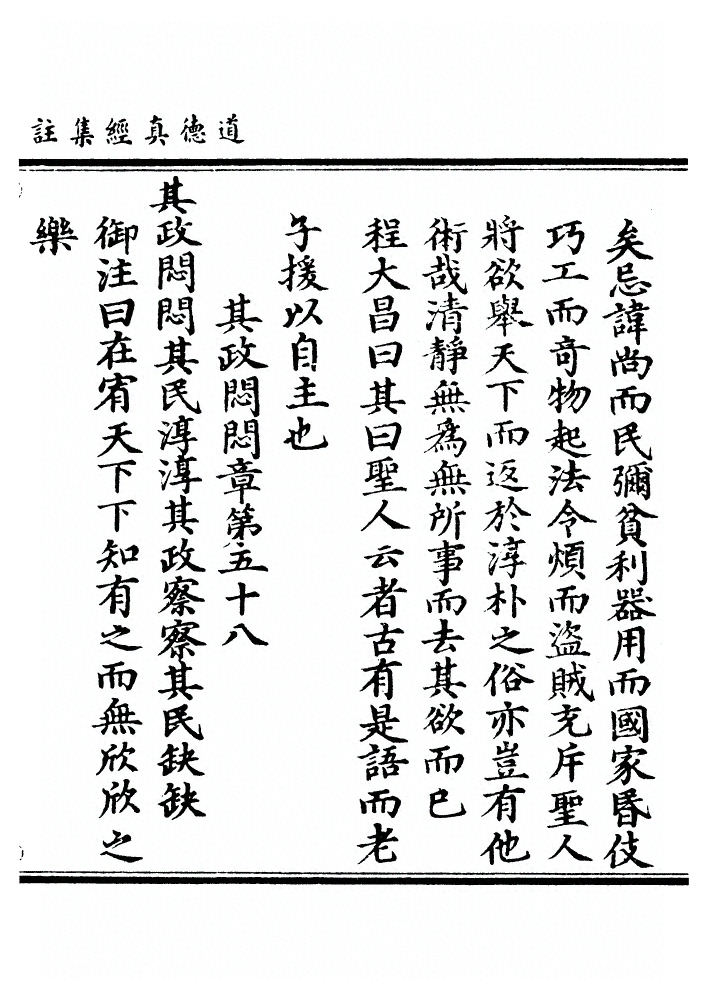 道德真經集註
矣忌諱尚而民彌貧利器用而國家昬伎
巧工而竒物起法令煩而盜賊充斥聖人
將欲舉天下而返於淳朴之俗亦豈有他
術哉清靜無為無所事而去其欲而已
程大昌曰其曰聖人云者古有是語而老
子援以自主也
其政悶悶章第五十八
其政悶悶其民淳淳其政察察其民缺缺
御注曰在宥天下下知有之而無欣欣之
樂